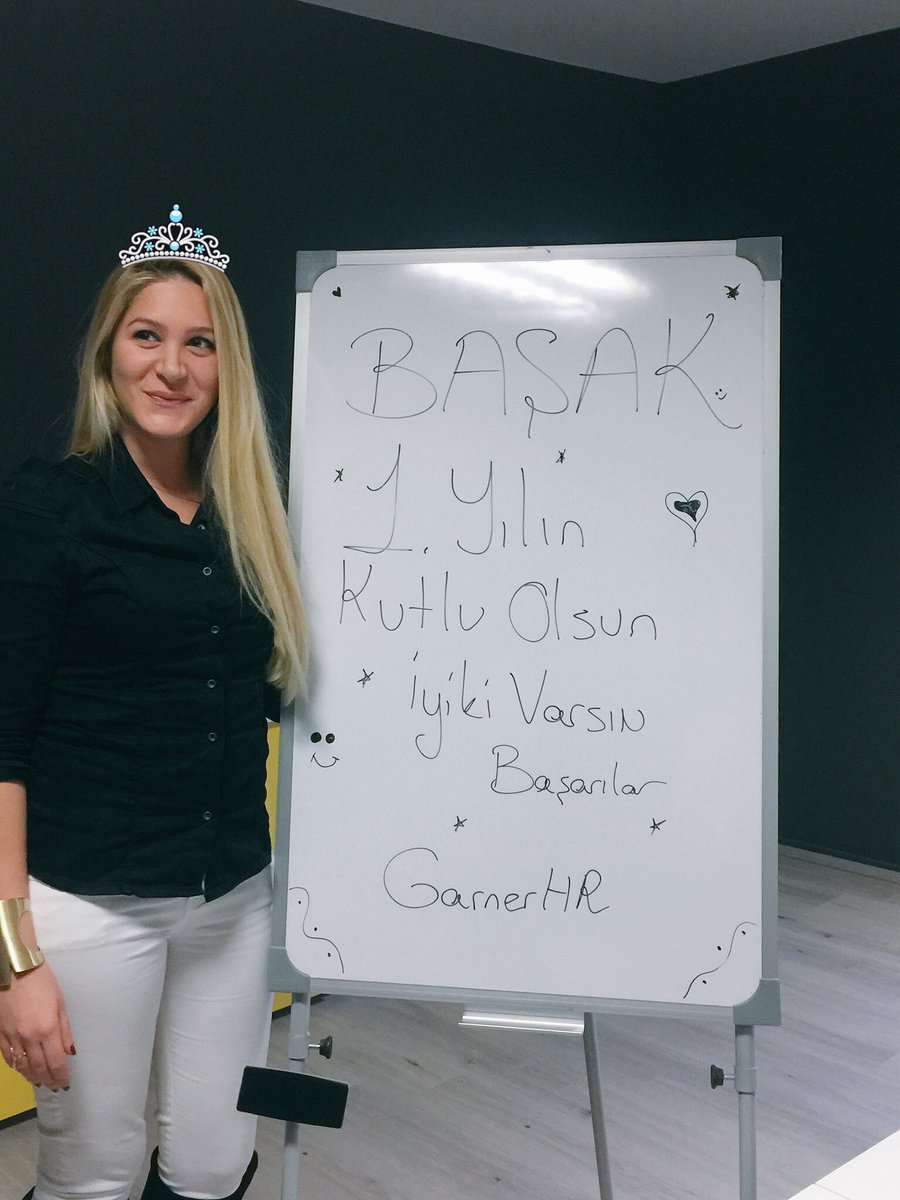 BAŞAK
1. Yılın
Kutlu Olsun
İyiki Varsın
Başarılar
GarnerHR